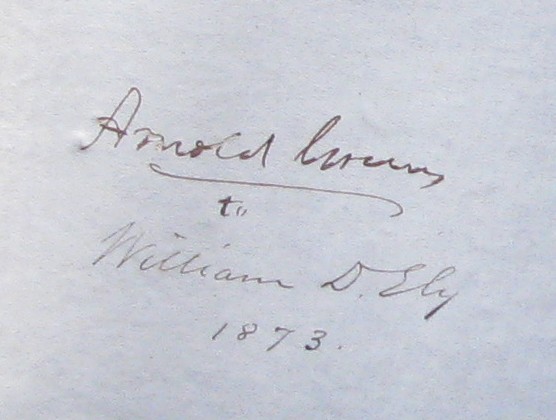 Arnold Green
to
William D. Ely
1873.